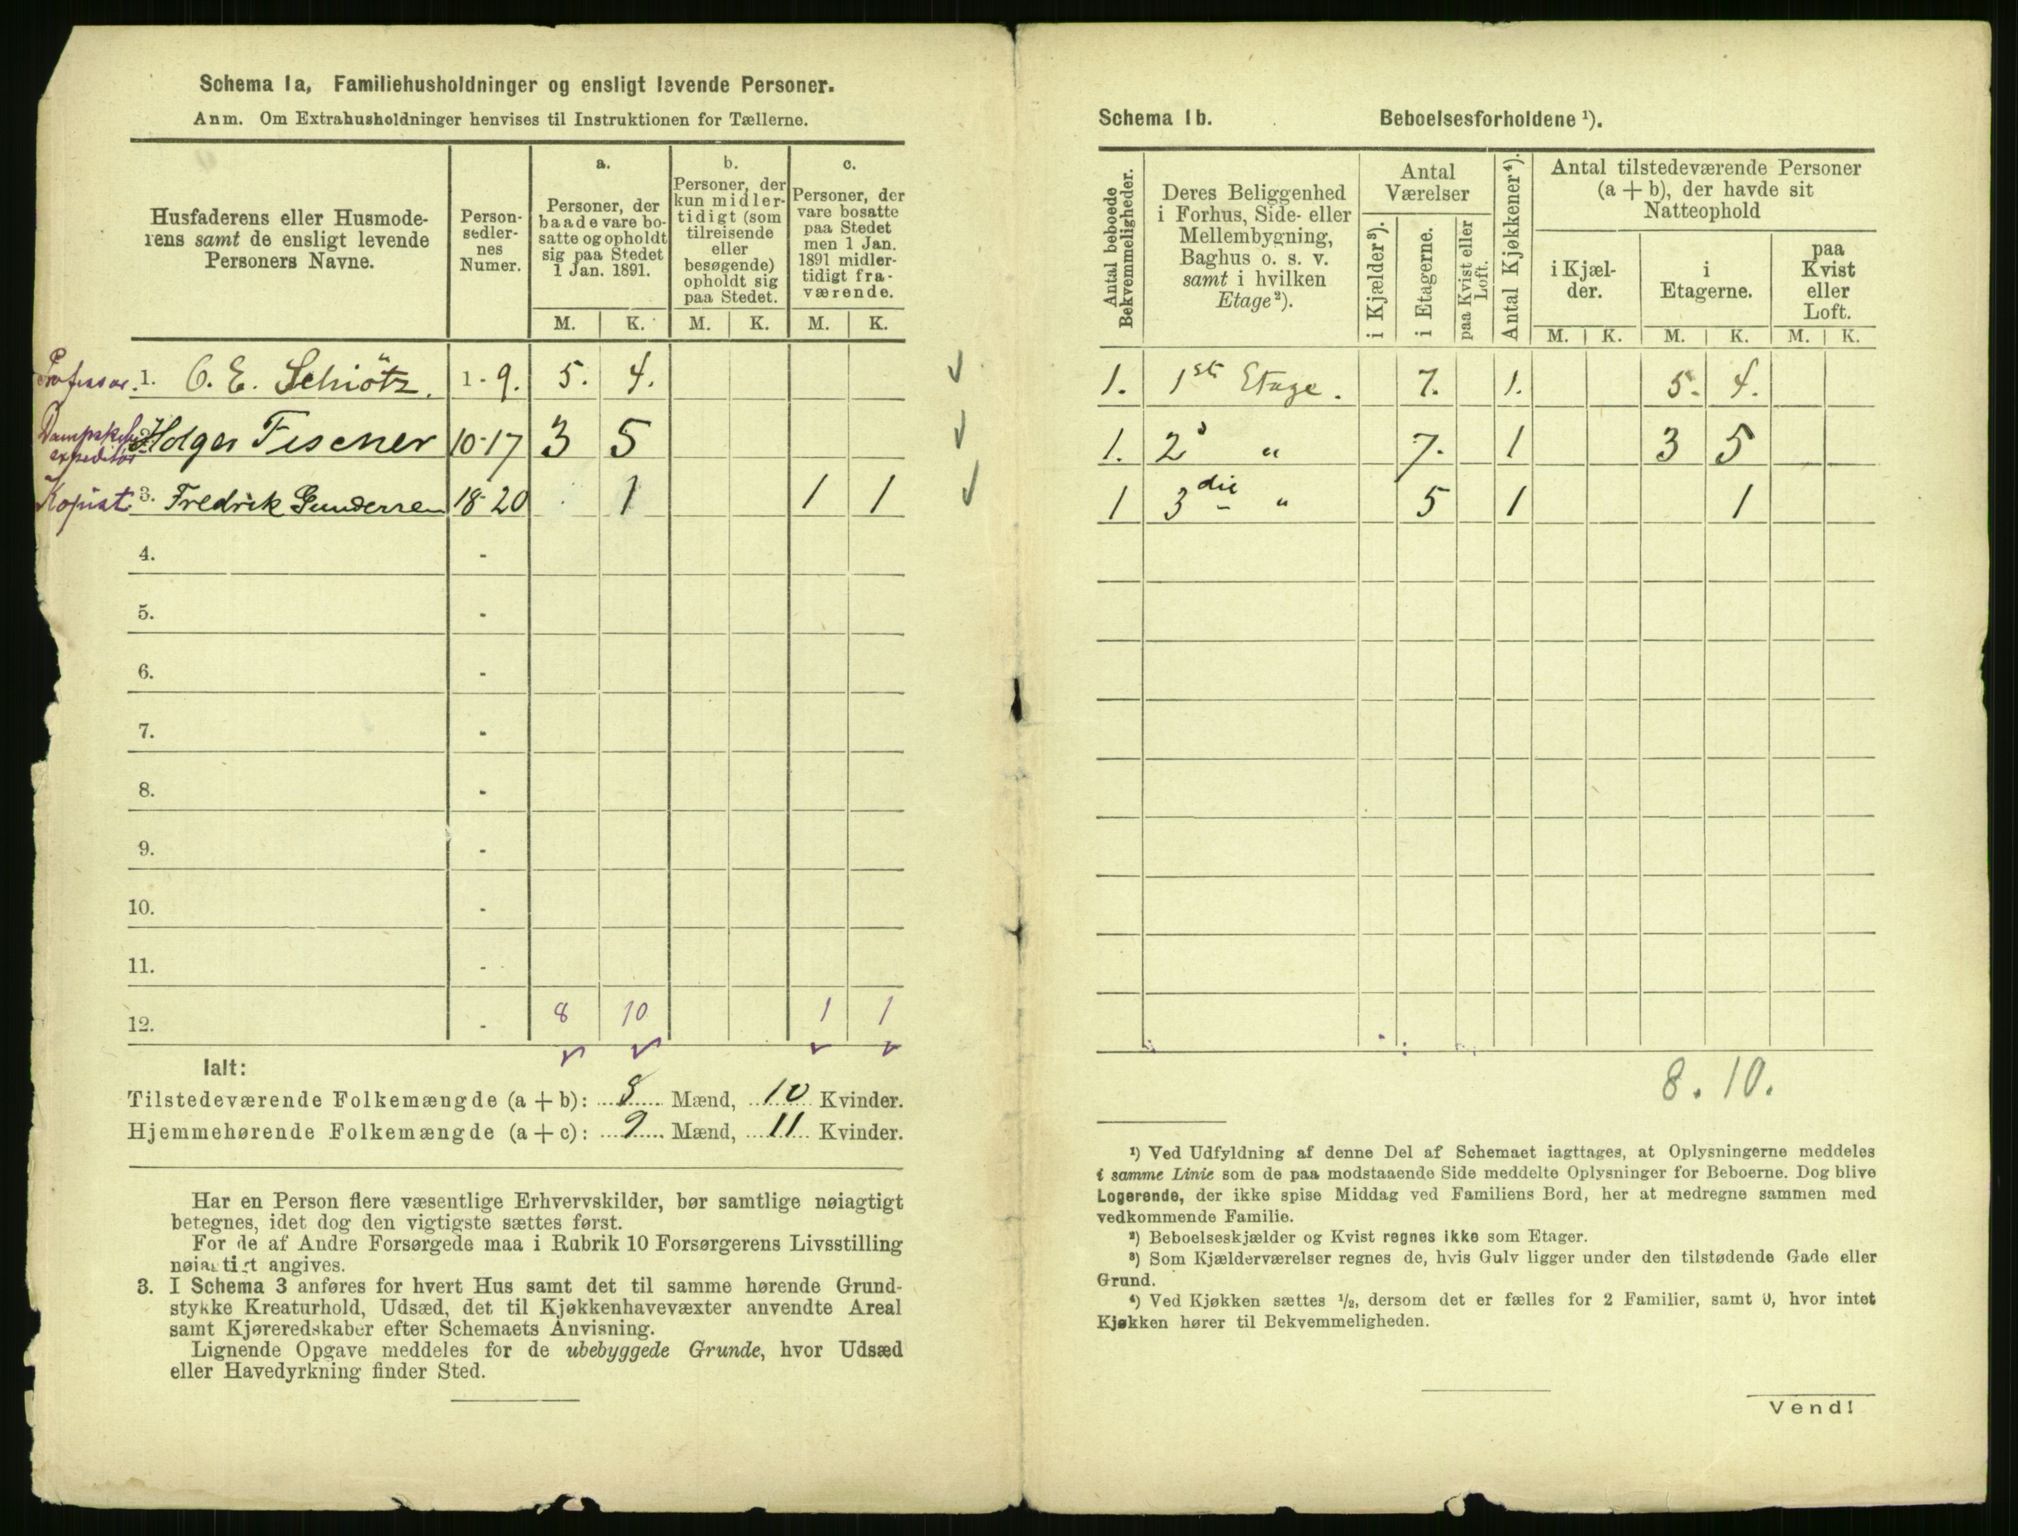 Schema 1a, Familiehusholdninger og ensligt levende Personer.
Anm. Om Extrahusholdninger henvises til Instruktionen for Tællerne.
Husfaderens eller Husmode-
rens samt de ensligt levende
Personers Navne.
Person-
sedler-
nes
Numer.
a.
Personer, der
baade vare bo-
satte og opholdt
sig paa Stedet
1 Jan. 1891.
b.
Personer, der
kun midler-
tidigt (som
tilreisende
eller
besøgende)
opholdt sig
paa Stedet.
c.
Personer, der
vare bosatte
paa Stedet
men 1 Jan.
1891 midler-
tidigt fra-
værende.
M. K. M. K. M. K.
Professor. 1. O. E. Schiötz. 1-9. 5. 4.
Dampskibs
expeditør Holger Fischer 10-17 3 5
Kopist 3. Fredrik Gundersen 18-20 1 1 1
4. -
5. -
6. -
7. -
8. -
9. -
10. -
11. -
12. - 8 10 1 1
Ialt:
Tilstedeværende Folkemængde (a + b): 8 Mænd, 10 Kvinder.
Hjemmehørende Folkemængde (a + c): 9 Mænd, 11 Kvinder.
Har en Person flere væsentlige Erhvervskilder, bør samtlige nøiagtigt
betegnes, idet dog den vigtigste sættes først.
For de af Andre Forsørgede maa i Rubrik 10 Forsørgerens Livsstilling
nøiagtigt angives.
3. I Schema 3 anføres for hvert Hus samt det til samme hørende Grund-
stykke Kreaturhold, Udsæd, det til Kjøkkenhavevæxter anvendte Areal
samt Kjøreredskaber efter Schemaets Anvisning.
Lignende Opgave meddeles for de ubebyggede Grunde, hvor Udsæd
eller Havedyrkning finder Sted.
Schema 1b. Beboelsesforholdene ¹).
Antal beboede
Bekvemmeligheder.
Deres Beliggenhed
i Forhus, Side- eller
Mellembygning,
Baghus o. s. v.
samt i hvilken
Etage ²).
Antal
Værelser
i Kjælder ³).
i Etagerne.
paa Kvist eller
Loft.
Antal Kjøkkener ⁴).
Antal tilstedeværende Personer
(a + b), der havde sit
Natteophold
i Kjæl-
der.
i
Etagerne.
paa
Kvist
eller
Loft.
M. K. M. K. M. K.
1. 1ste Etage. 7. 1. 5. 4.
1. 2 " 7. 1 3 5
1 3die " 5 1 1
8. 10.
¹) Ved Udfyldning af denne Del af Schemaet iagttages, at Oplysningerne meddeles
i samme Linie som de paa modstaaende Side meddelte Oplysninger for Beboerne. Dog blive
Logerende, der ikke spise Middag ved Familiens Bord, her at medregne sammen med
vedkommende Familie.
²) Beboelseskjælder og Kvist regnes ikke som Etager.
³) Som Kjælderværelser regnes de, hvis Gulv ligger under den tilstødende Gade eller
Grund.
⁴) Ved Kjøkken sættes ¹/₂, dersom det er fælles for 2 Familier, samt 0, hvor intet
Kjøkken hører til Bekvemmeligheden.
Vend!